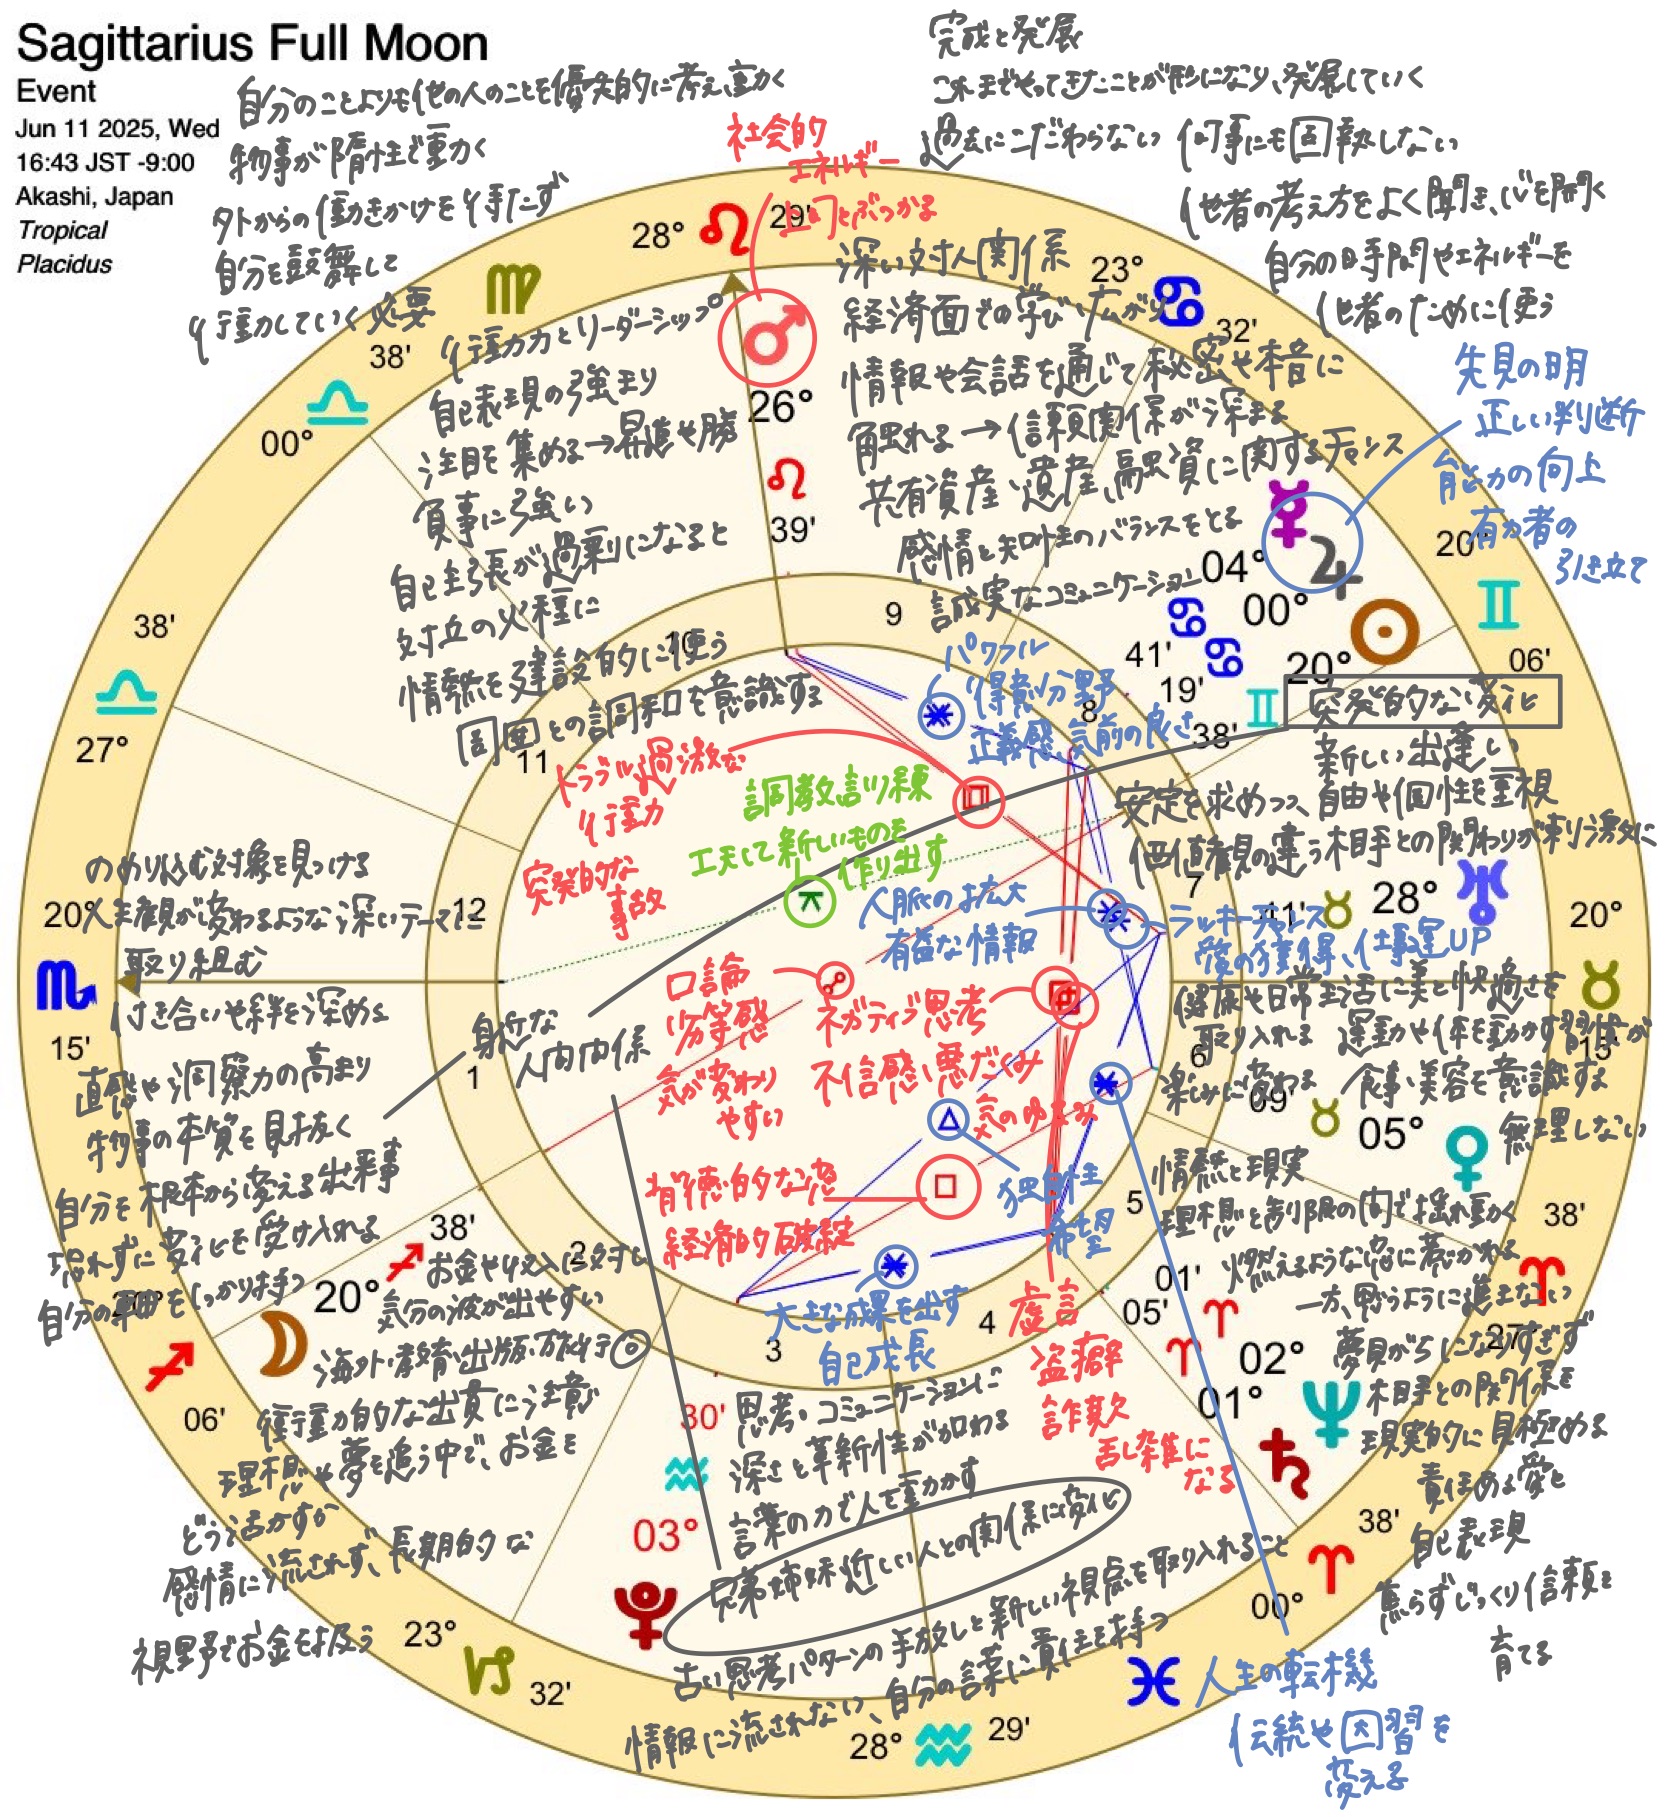 Sagittarius Full Moon
Event
Jun 11 2025, Wed
16:43 JST -9:00
Akashi, Japan
Tropical
Placidus
自分のことよりも他の人のことを優先的に考え、動く
物事が惰性で動く
外からの働きかけを待たず
自分を鼓舞して
行動していく必要
完成と発展
これまでやってきたことが形になり、発展していく
過去にこだわらない 何事にも固執しない
他者の考え方をよく聞き、心を開く
自分の時間やエネルギーを
他者のために使う
社会的
エネルギー
上司とぶつかる
28° 29'
23° 32'
38'
00°
行動力とリーダーシップ
自己表現の強まり
注目を集める→昇進や勝
負事に強い
自己主張が過剰になると
対立の火種に
情熱を建設的に使う
周囲との調和を意識する
26°
39'
深い対人関係
経済面での学び、広がり
情報や会話を通じて秘密や本音に
触れる→信頼関係が深まる
共有資産、遺産、融資に関するチャンス
感情と知性のバランスをとる
誠実なコミュニケーション
先見の明
正しい判断
能力の向上
有力者の
引き立て
04°
00°
20°
20°
06'
41'
19'
38'
突発的な変化
新しい出逢い
安定を求めつつ、自由や個性を重視
価値観の違う相手との関わりが刺激に
11' 28°
20°
15'
パワフル
得意分野
正義感、気前の良さ
トラブル、過激な
行動
突発的な
事故
調教、訓練
工夫して新しいものを
作り出す
人脈の拡大
有益な情報
ラッキーチャンス
愛の獲得、仕事運UP
健康や日常生活に美と快適さを
取り入れる 運動や体を動かす習慣が
楽しみに変わる 食事、美容を意識する
無理しない
09' 05°
38'
27°
20°
15'
のめり込む対象を見つける
人生観が変わるような深いテーマに
取り組む
付き合いや絆を深める
直感や洞察力の高まり
物事の本質を見抜く
自分を根本から変える出来事
恐れずに変化を受け入れる
自分の軸をしっかり持つ
身近な
人間関係
口論
劣等感
気が変わり
やすい
ネガティブ思考
不信感、悪だくみ
気のゆるみ
独創性
希望
背徳的な恋
経済的破綻
大きな成果を出す
自己成長
虚言
盗癖
詐欺
乱雑に
なる
情熱と現実
理想と制限の間で揺れ動く
燃えるような恋に惹かれる
一方、思うように進まない
夢見がちになりすぎず
相手との関係を
現実的に見極める
責任ある愛と
自己表現
焦らずじっくり信頼を
育てる
01'
05'
02°
01°
27°
38'
00°
38'
20°
20°
06'
お金や収入に対し
気分の波が出やすい
海外、教育、出版、旅行◎
衝動的な出費に注意
理想や夢を追う中で、お金を
どう活かすか
感情に流されず、長期的な
視野でお金を扱う
30'
03°
23° 32'
28° 29'
思考、コミュニケーションに
深さと革新性が加わる
言葉の力で人を動かす
兄弟姉妹、近しい人との関係に変化
古い思考パターンの手放しと新しい視点を取り入れること
情報に流されない、自分の言葉に責任を持つ
人生の転機
伝統や因習を
変える
1
2
3
4
5
6
7
8
9
10
11
12